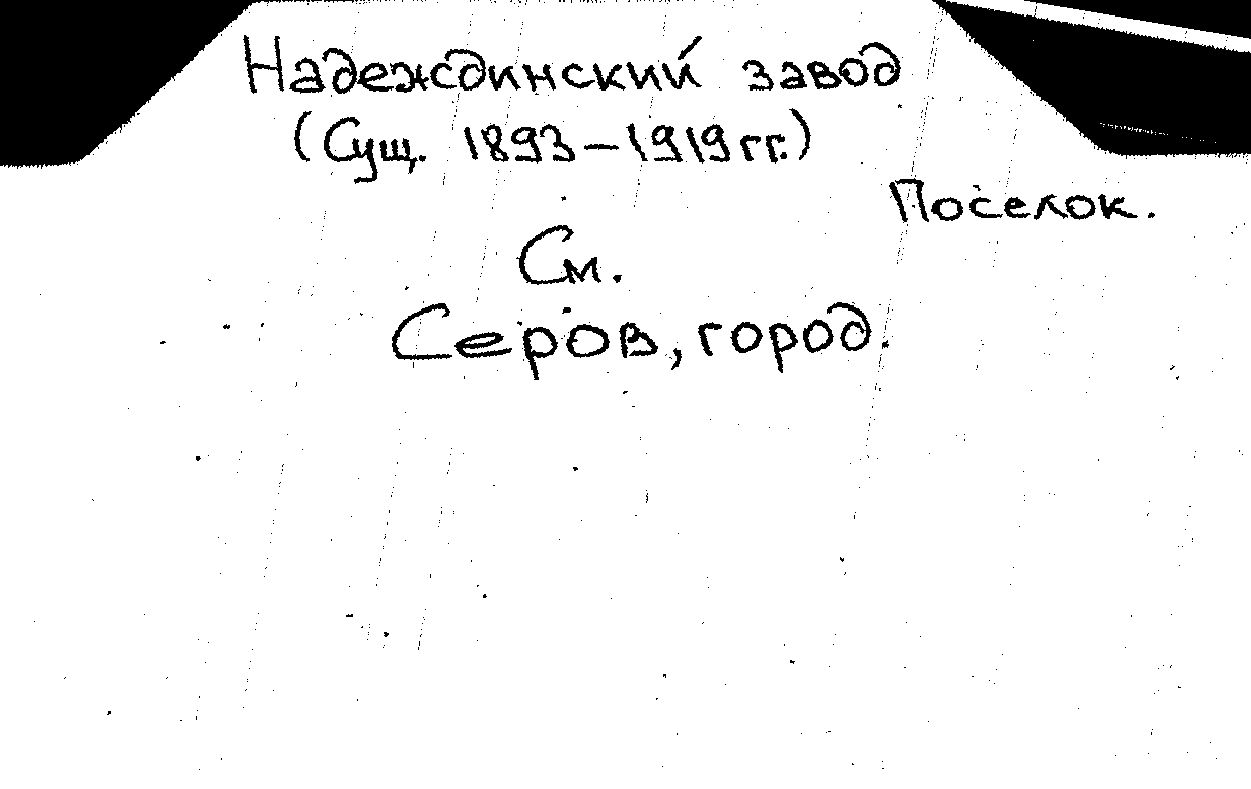 Надеждинский завод
(Сущ. 1893–1919 гг.)
Поселок.
См.
Серов, город.